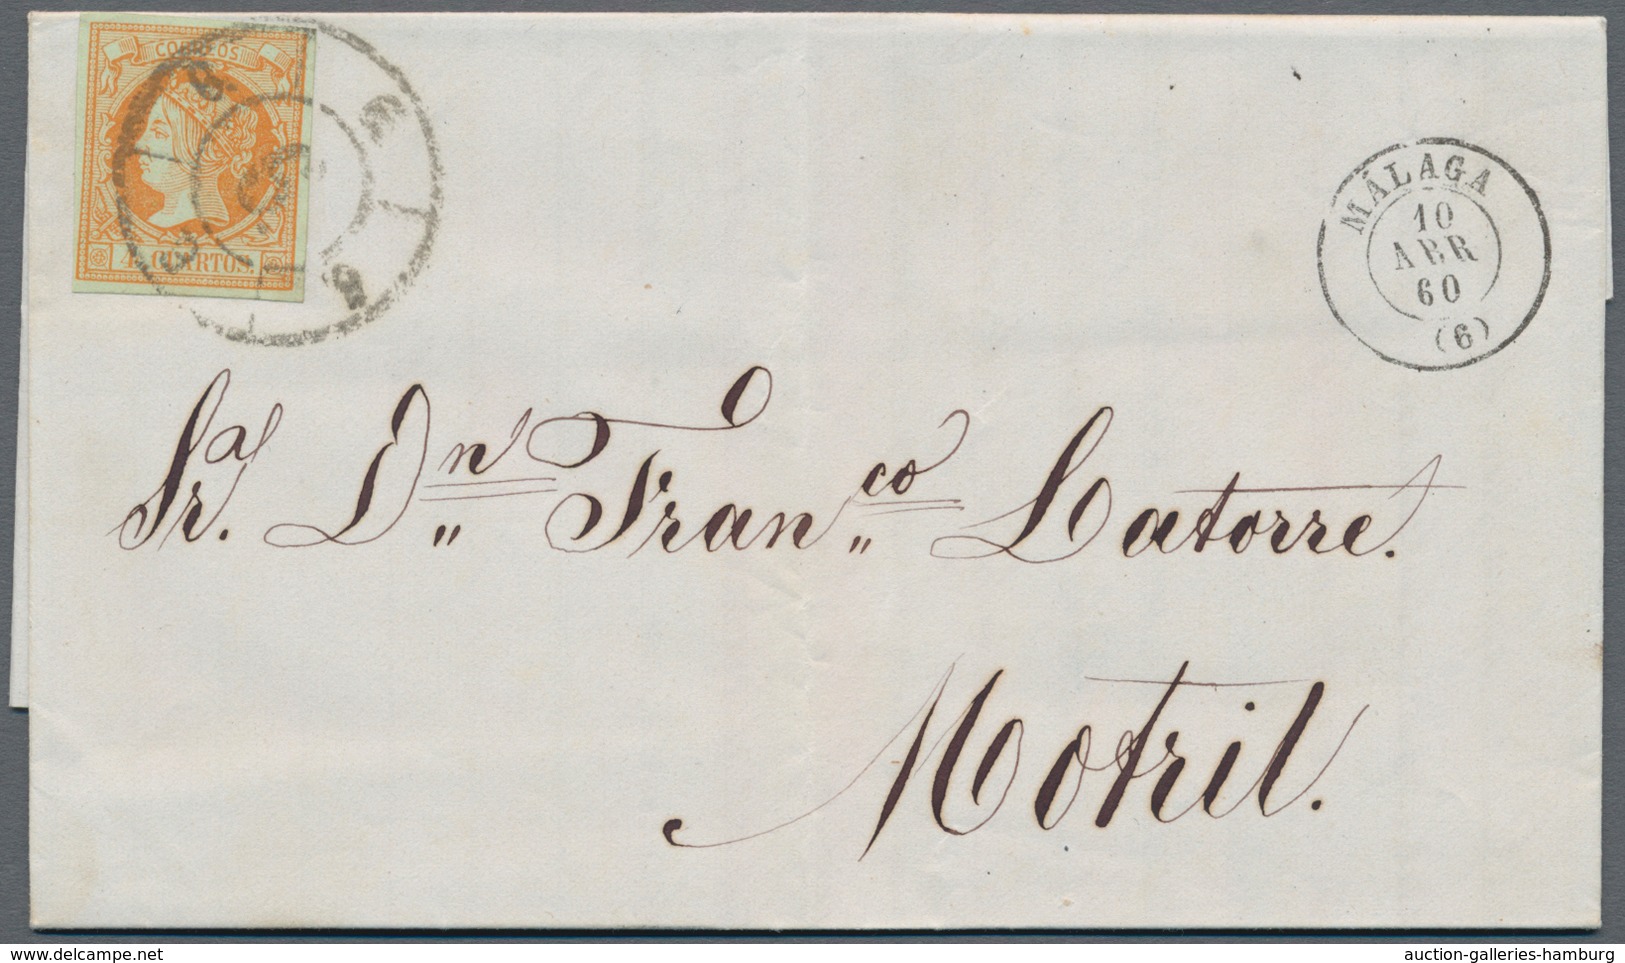 CORREOS
4 CUARTOS.
MÁLAGA
10
ABR
60
(6)
Sr. Dn. Franco. Latorre.
Motril.
www.delcampe.net
auction-galleries-hamburg